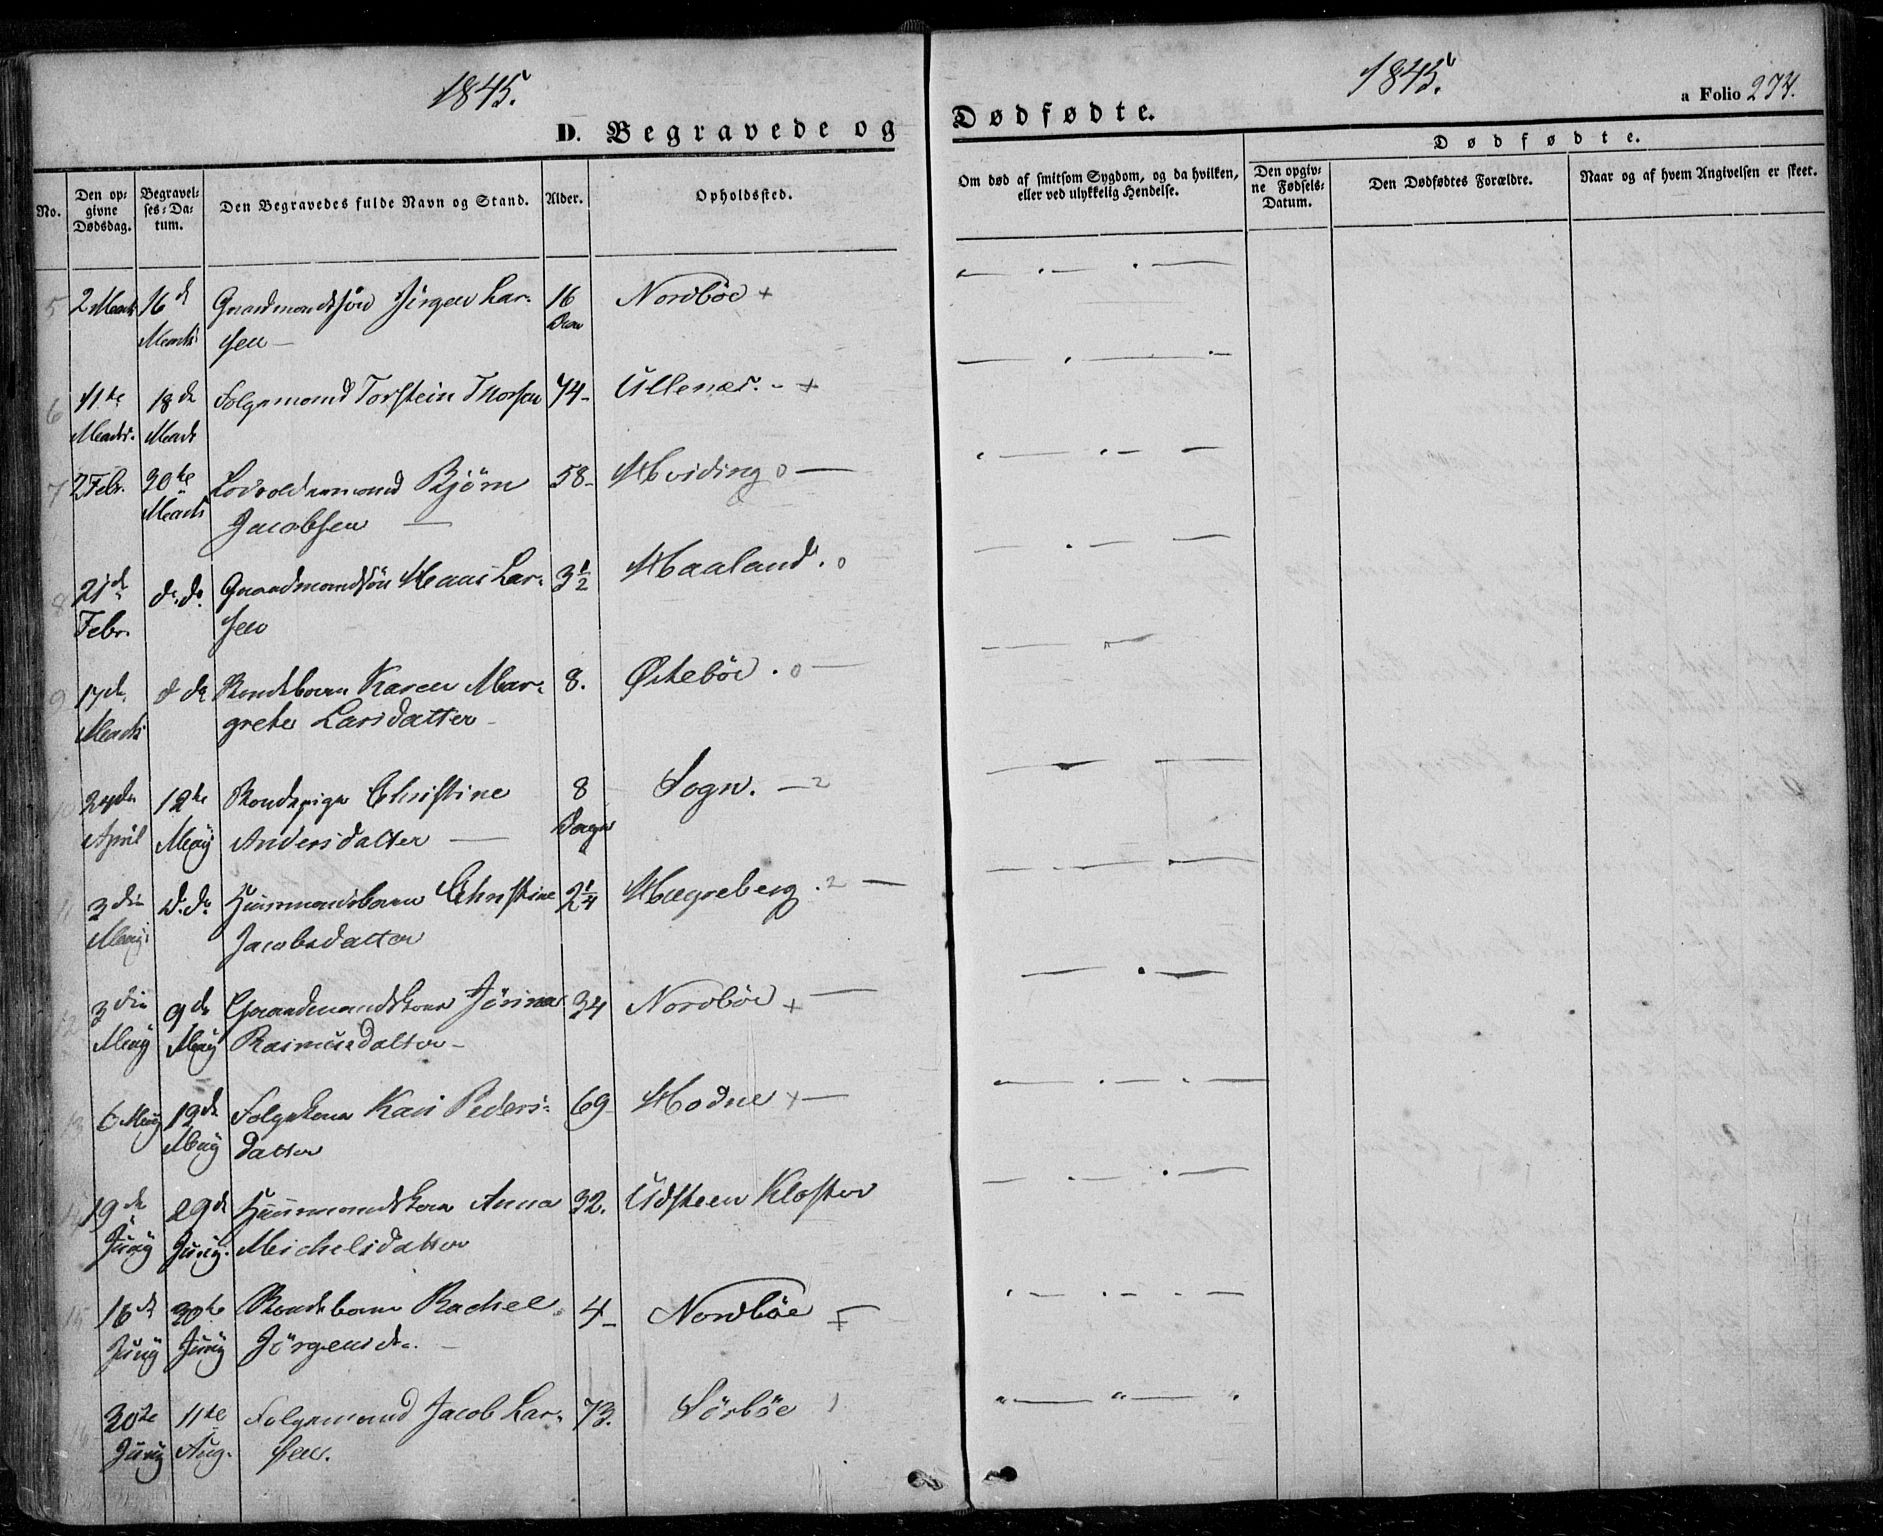 1845.
D. Begravede og
No.
Den opgivne Dødsdag.
Begravelses-Datum.
Den Begravedes fulde Navn og Stand.
Alder.
Opholdssted.
5 2 Marts 16d Marts Gaardmandssøn Jørgen Larsen — 16 Nordbøe +
6 11te Marts. 18de Marts Folgemand Torstein Thorsen 74- Ullenæs. - +
7 2 Febr. 20te Marts Bjørn Jacobsen — 58- Hviding o —
8 21d Febr. d. do. Gaardmandssøn Hans Larsen 3½ Haaland. o
9 17de Marts d do Bondebarn Karen Margrete Larsdatter - 8. Østebøe. o —
10 24de April 12te May Bondepige Christine Andersdatter — 8 Dage Sogn. — 2
11 3die May. d. do. Huusmandsbarn Christine Jacobsdatter 2¼ Hægreberg. 2 —
12 3die May 9de May Gaardmandskone Rasmusdatter - 34 Nordbøe + —
13 6 May 12de May Folgekone Kari Pedersdatter 69 Hodne + —
14 19de Juny 29de Juny. Huusmandskone Anna Michelsdatter 32. Udsteen Kloster
15 16de Juny 30te Juny Bondebarn Rachel Jørgensd. — 4- Nordbøe +
16 30te Juny 11te Aug. Folgemand Jacob Larsen. 73. Sørbøe
1845.
a Folio 274.
Dødfødte.
Om død af smitsom Sygdom, og da hvilken, eller ved ulykkelig Hendelse.
Dødfødte.
Den opgivne Fødsels-Datum.
Den Dødfødtes Forældre.
Naar og af hvem Angivelsen er skeet.